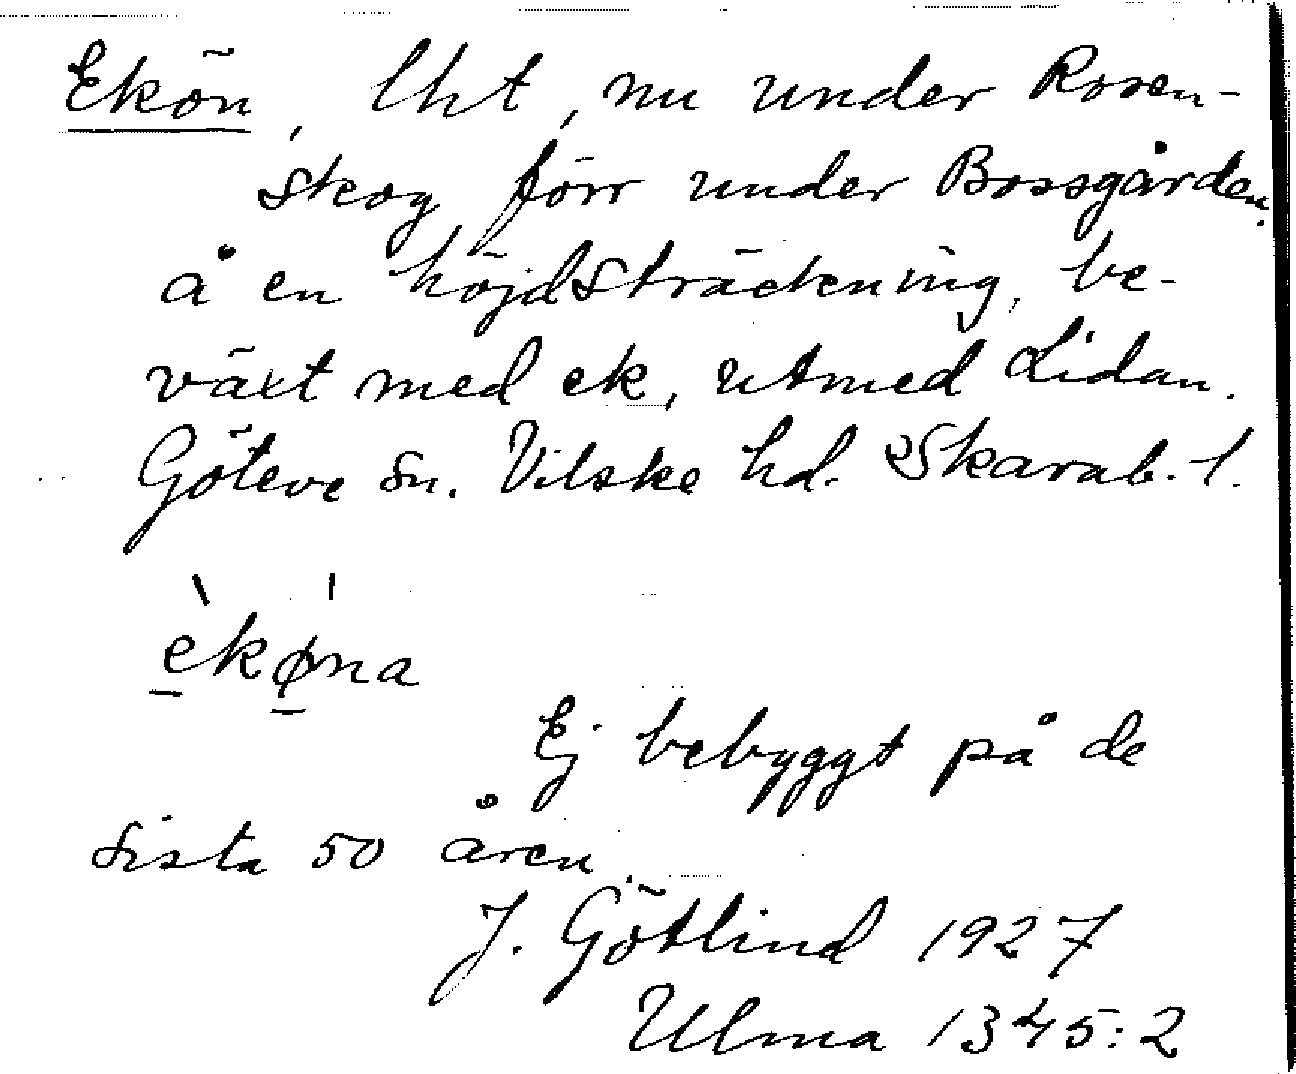 Ekön, lht, nu under Rosen-
skog förr under Bossgården.
å en höjdsträckning, be-
växt med ek, utmed Lidan.
Göteve sn. Vilske hd. Skarab. l.
èkǿ̱na
Ej bebyggt på de
sista 50 åren.
J. Götlind 1927
Ulma 1345:2